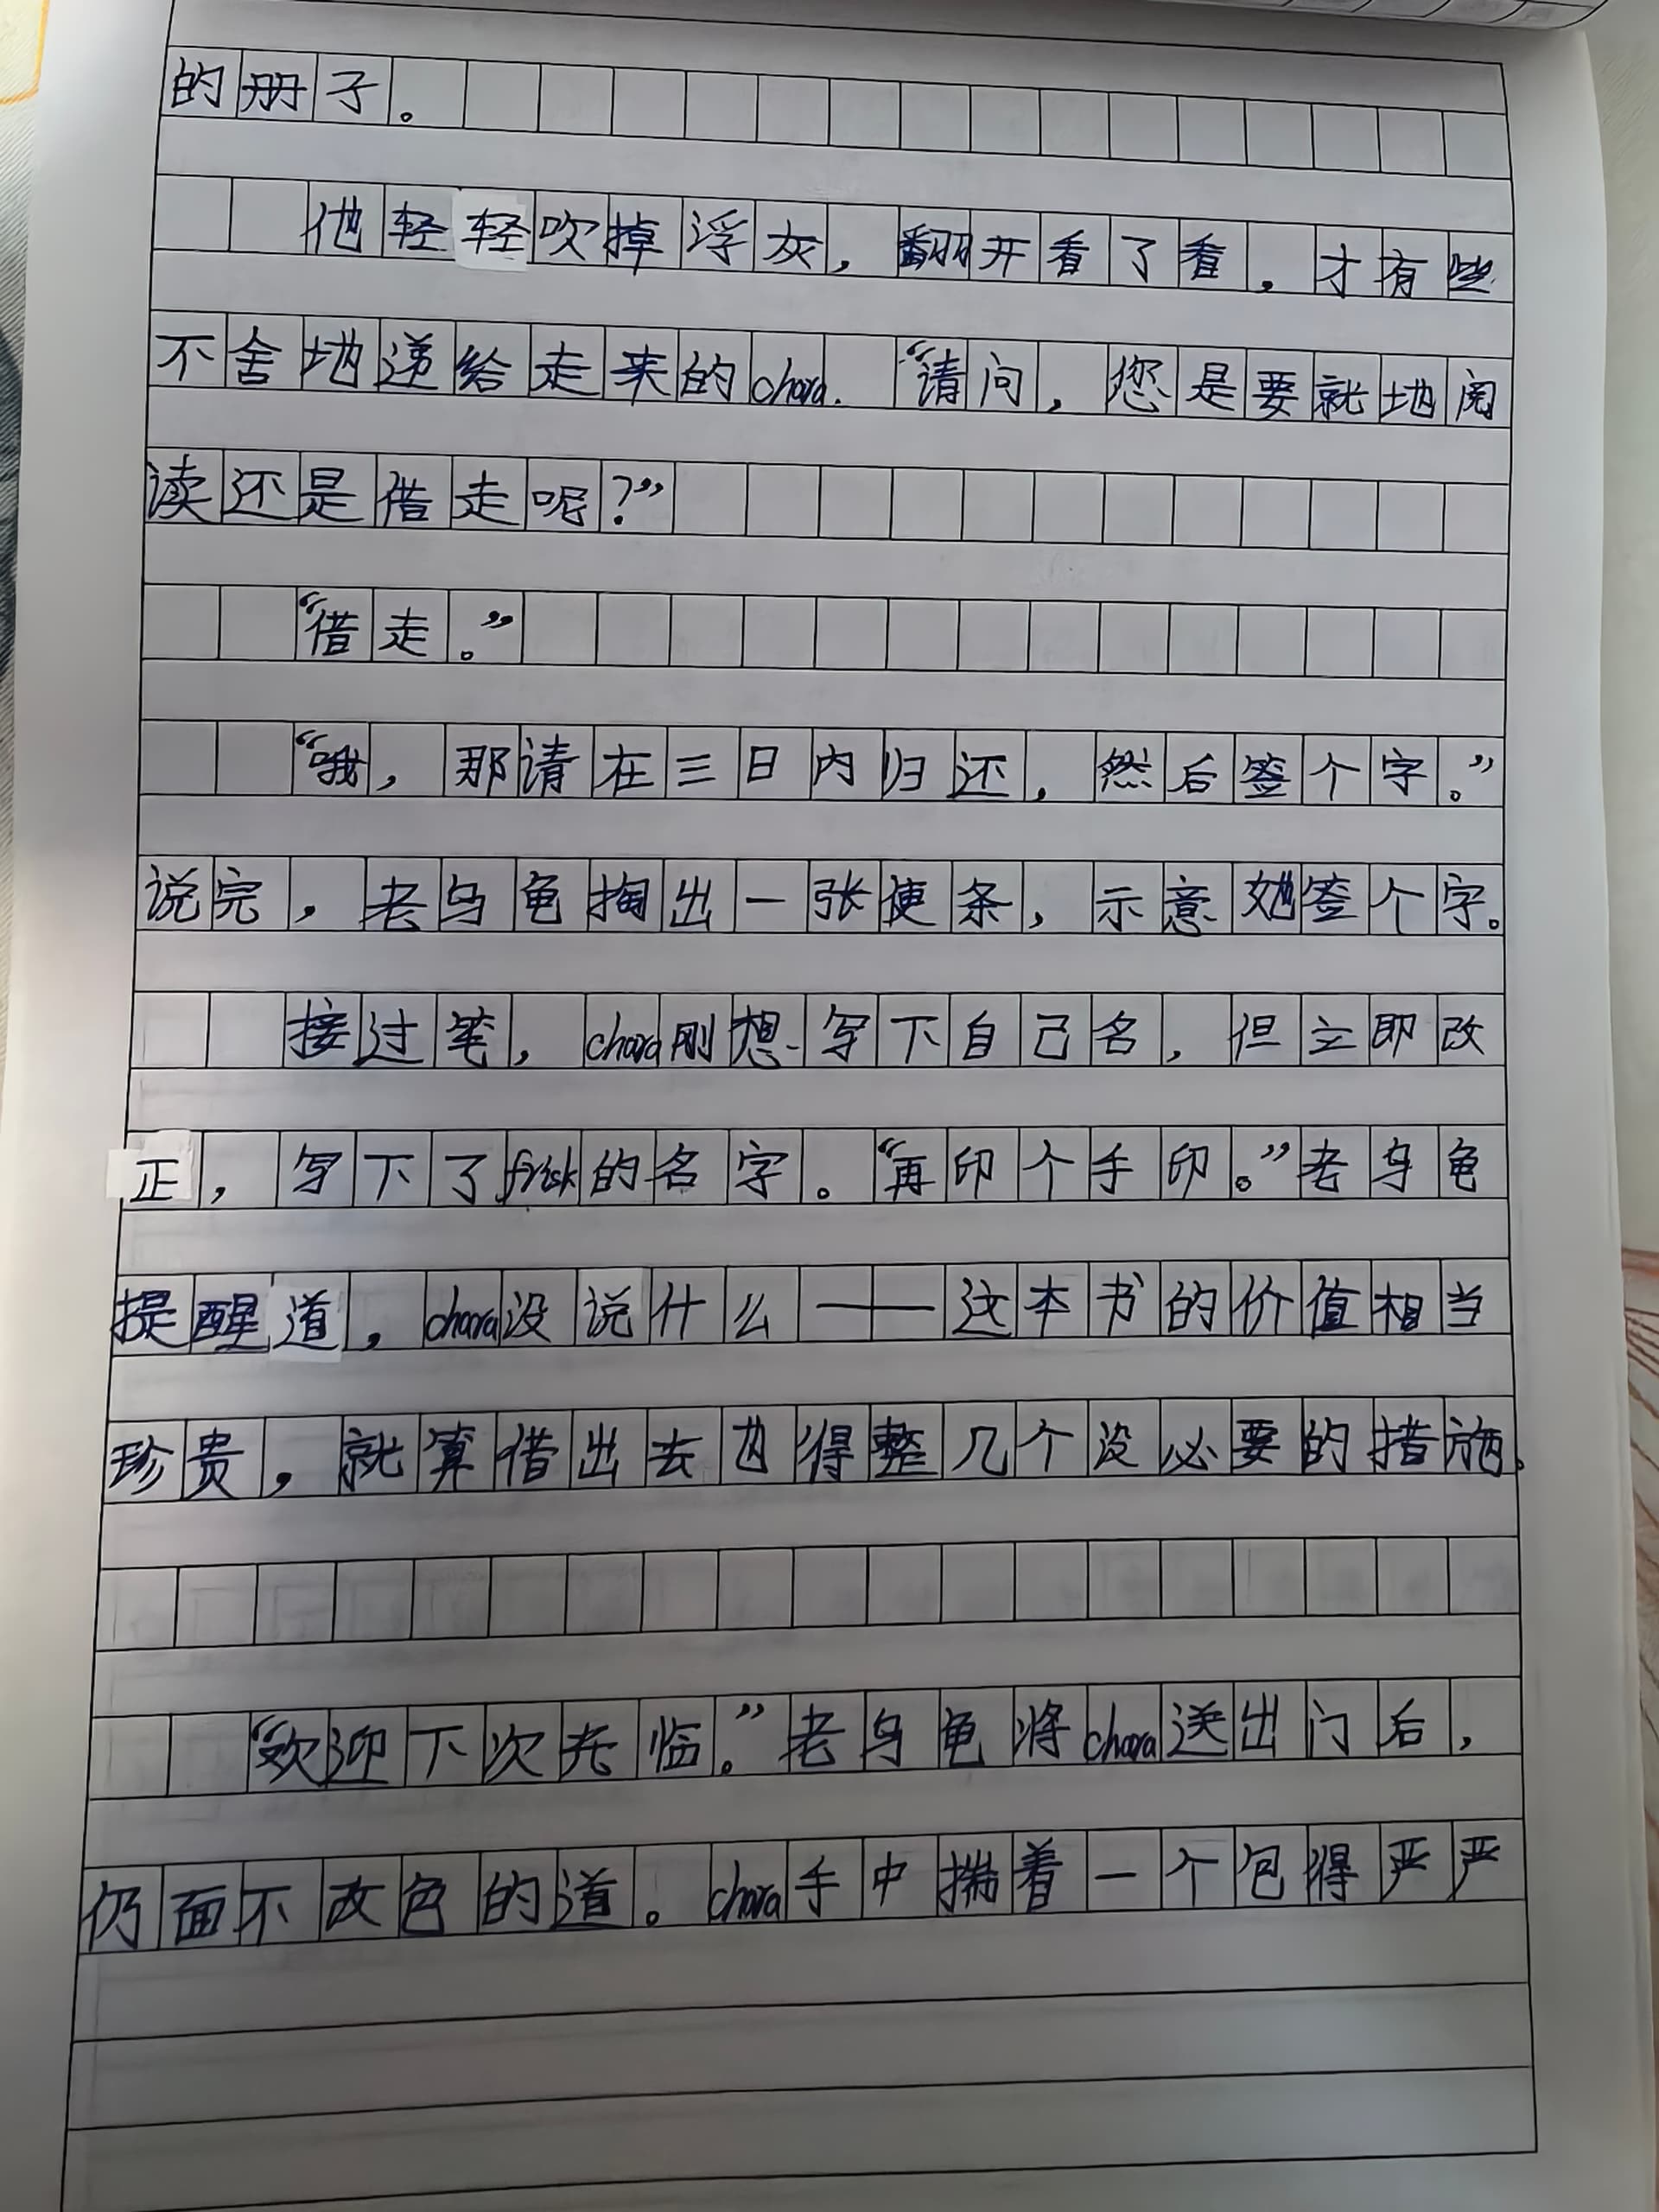 的册子。
他轻轻吹掉浮灰，翻开看了看，才有些
不舍地递给走来的chara.“请问，您是要就地阅
读还是借走呢？”
“借走。”
“哦，那请在三日内归还，然后签个字。”
说完，老乌龟掏出一张便条，示意她签个字。
接过笔，chara刚想写下自己名，但立即改
正，写下了frisk的名字。“再印个手印。”老乌龟
提醒道，chara没说什么——这本书的价值相当
珍贵，就算借出去也得整几个没必要的措施。
“欢迎下次光临。”老乌龟将chara送出门后，
仍面不改色的道。chara手中揣着一个包得严严